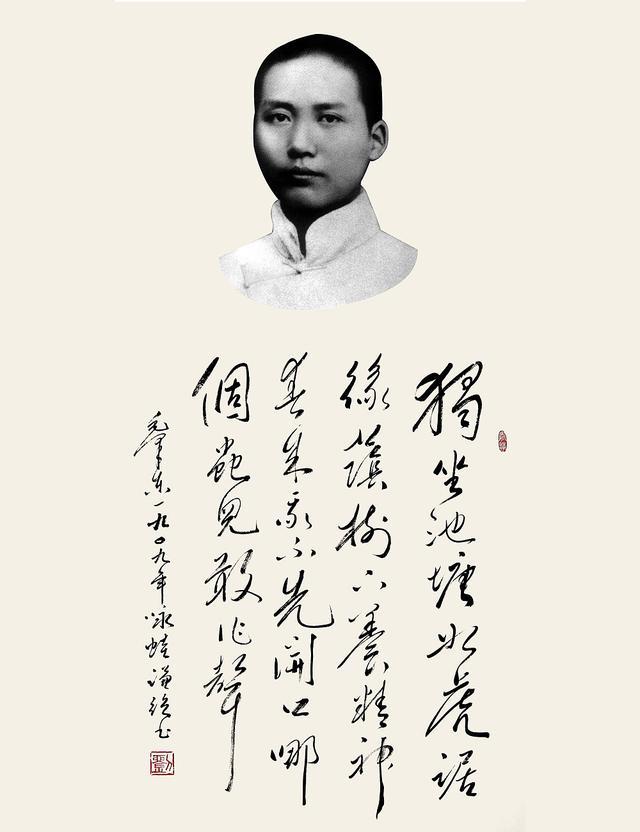 獨坐池塘如虎踞
綠蔭樹下養精神
春來我不先開口哪
個蟲兒敢作聲
毛泽东一九〇九年咏蛙